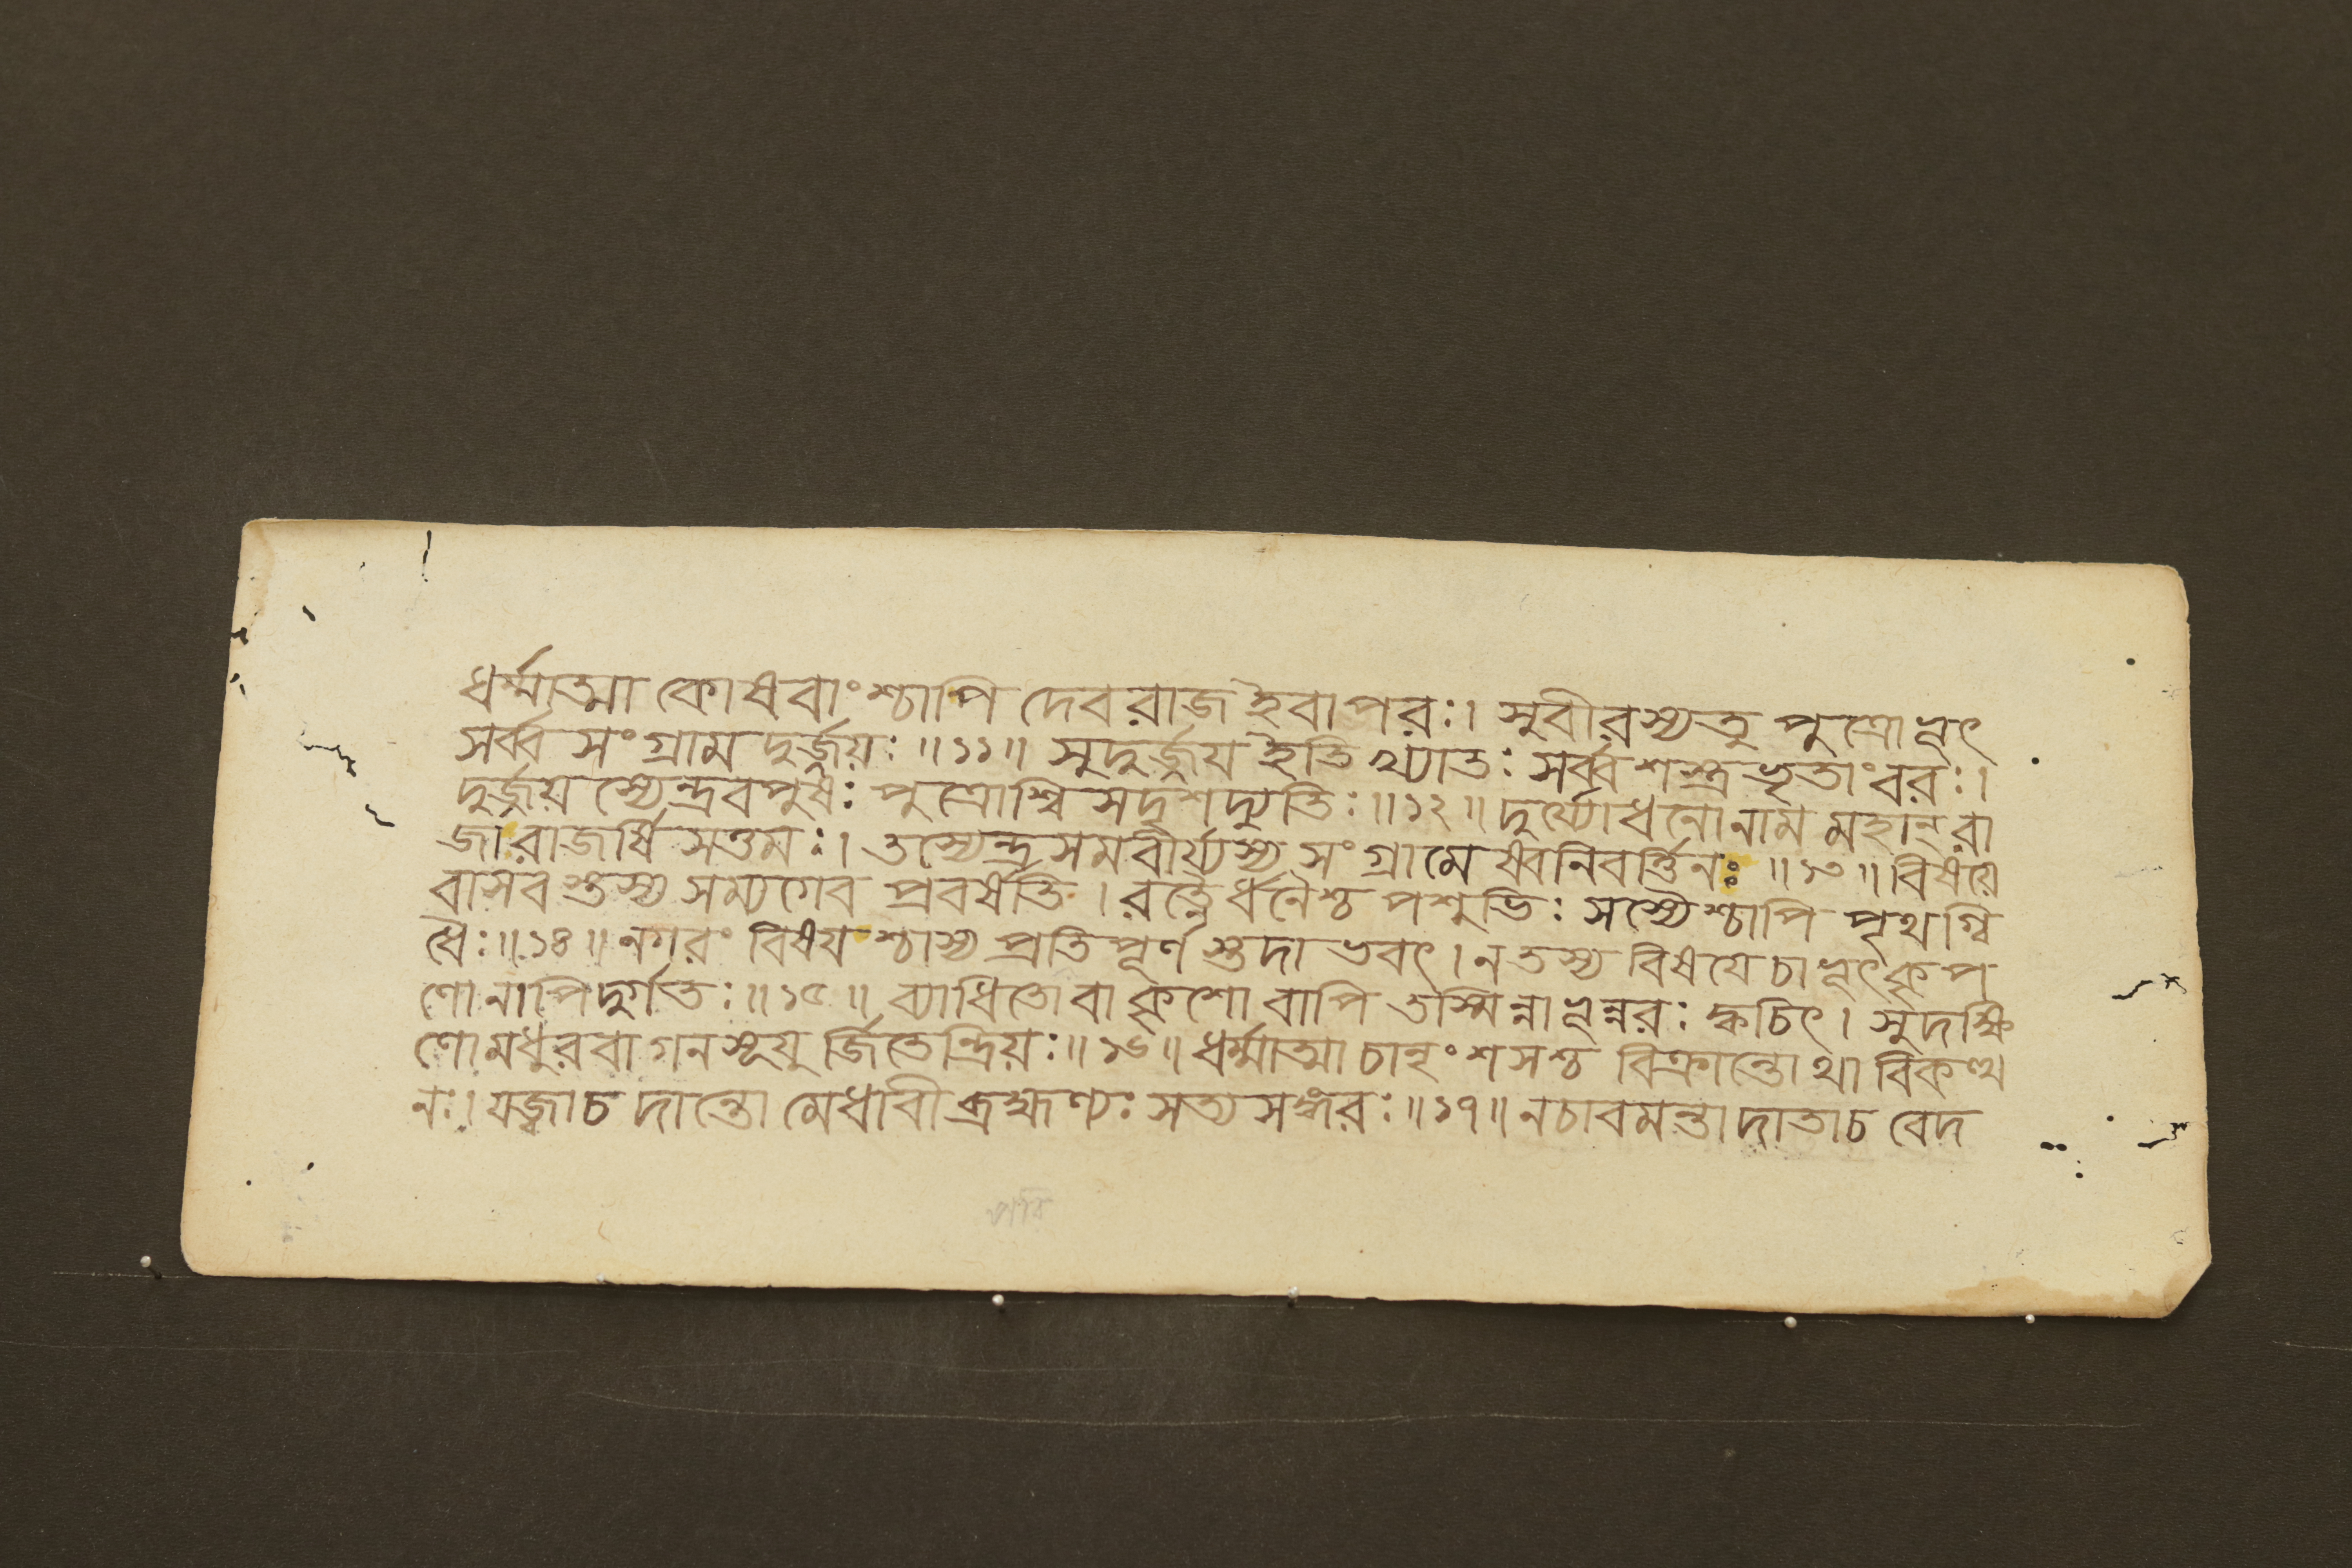 ধর্ম্মাত্মা কোষবাংশ্চাপি দেবরাজ ইবাপরঃ। সুবীরস্যতু পুত্রোভূৎ
সর্ব্বসংগ্রাম দুর্জয়ঃ॥১১॥ সুদুর্জয় ইতি খ্যাতঃ সর্ব্বশস্ত্রভৃতাংবরঃ।
দুর্জয়স্যেন্দ্রবপুষঃ পুত্রোশ্বিসদৃশদ্যুতিঃ॥১২॥ দুর্য্যোধনোনাম মহান্রা
জা রাজর্ষিসত্তমঃ। তস্যেন্দ্রসমবীর্য্যস্য সংগ্রামেষ্বনিবর্ত্তিনঃ॥১৩॥ বিষয়ে
বাসবস্তস্য সম্যগেব প্রবর্ষতি। রত্নৈর্ধনৈশ্চ পশুভিঃ সস্যৈশ্চাপি পৃথগ্বি
ধৈঃ॥১৪॥ নগরং বিষয়শ্চাস্য প্রতিপূর্ণস্তদাভবৎ। ন তস্য বিষয়ে চাভূৎকৃপ
ণো নাপিদুর্গতঃ॥১৫॥ ব্যাধিতো বা কৃশো বাপি তস্মিন্নাভূন্নরঃ ক্বচিৎ। সুদক্ষি
ণো মধুরবাগনসূযুর্জিতেন্দ্রিয়ঃ॥১৬॥ ধর্ম্মাত্মা চানৃংশসশ্চ বিক্রান্তোথাবিকত্থ
নঃ। যজ্বাচ দান্তো মেধাবী ব্রহ্মণ্যঃ সত্যসঙ্গরঃ॥১৭॥ নচাবমন্তা দাতাচ বেদ